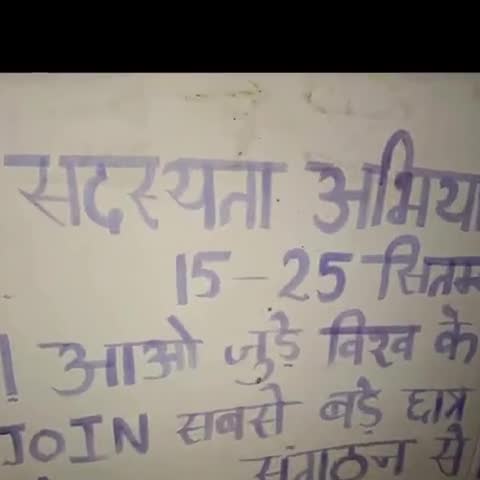 सदस्यता अभिया
15-25 सितम
! आओ जुड़े विश्व के
JOIN सबसे बड़े छात्र
संगठन से